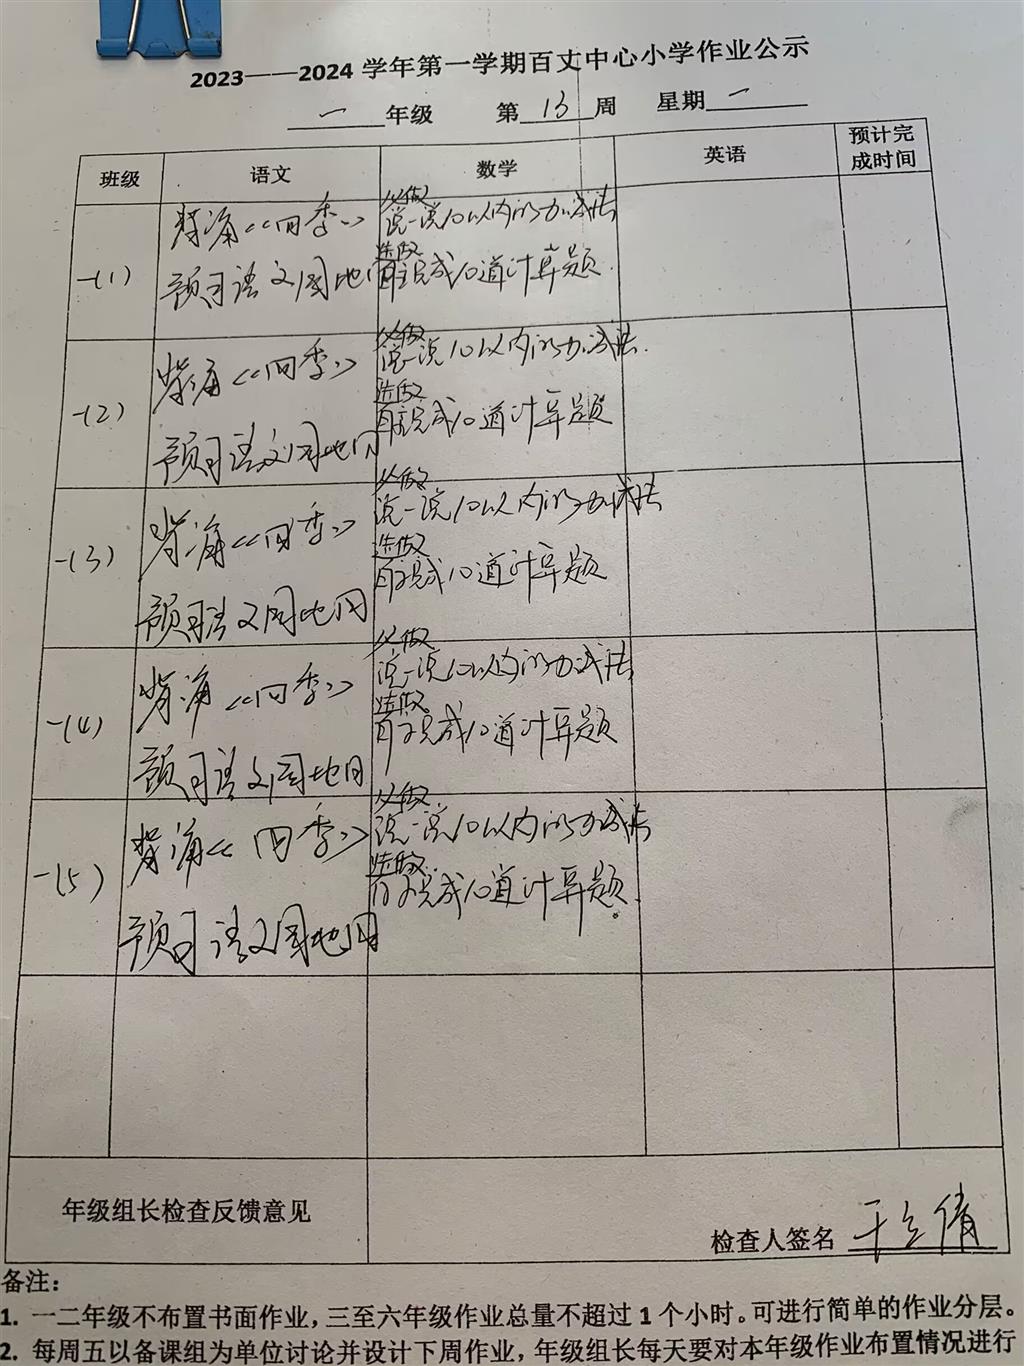 2023——2024 学年第一学期百丈中心小学作业公示
一 年级 第 13 周 星期 一
班级 语文 数学 英语 预计完成时间
一(1)
背诵《四季》
预习语文园地四
必做
说一说10以内的加减法
选做
自主完成10道计算题.
一(2)
背诵《四季》
预习语文园地四
必做
说一说10以内的加减法.
选做
自主完成10道计算题
一(3)
背诵《四季》
预习语文园地四
必做
说一说10以内的加减法
选做
自主完成10道计算题
一(4)
背诵《四季》
预习语文园地四
必做
说一说10以内的加减法
选做
自主完成10道计算题
一(5)
背诵《四季》
预习语文园地四
必做
说一说10以内的加减法
选做
自主完成10道计算题.
年级组长检查反馈意见
检查人签名
备注：
1. 一二年级不布置书面作业，三至六年级作业总量不超过 1 个小时。可进行简单的作业分层。
2. 每周五以备课组为单位讨论并设计下周作业，年级组长每天要对本年级作业布置情况进行